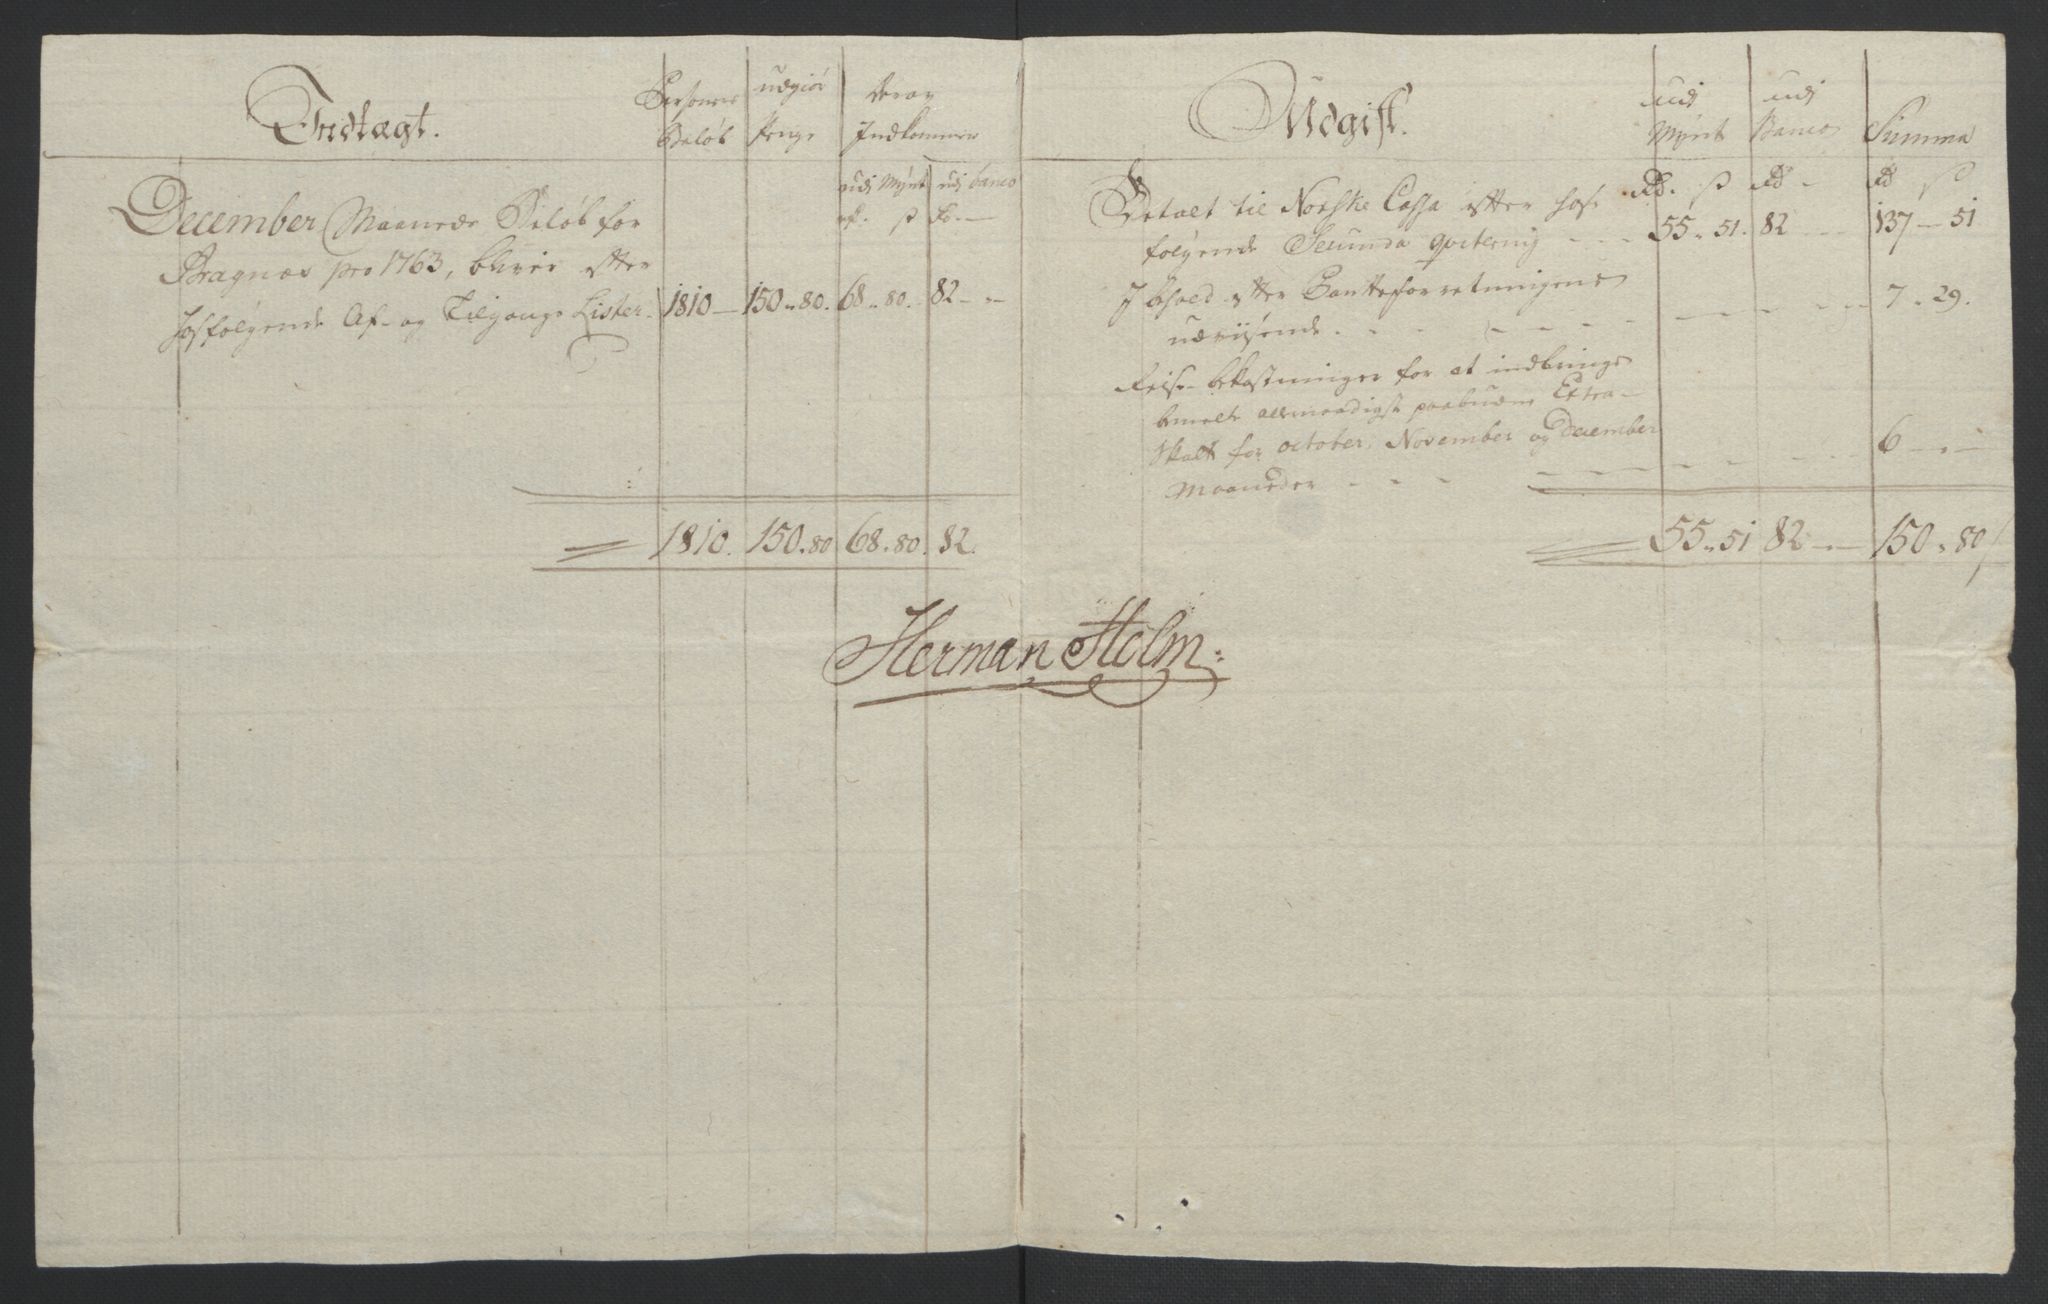 Indtægt.
Personers Beløb
udgiør Penge
Deraf Indkommer
udj Mynt
udj banco
rd. ß
rd. —
December Maaneds Beløb for
Bragnæs pro 1763, bliver efter
hosfølgende Af- og Tilgangs Lister. 1810 — 150 " 80. 68 " 80. 82 - "
1810. 150 " 80 68 " 80. 82.
Udgift.
udj Mynt
udj Banco
Summa
Rd. ß
Rd -
Rd ß
Betalt til Norske Cassa efter hos-
følgende Secunda qvitering - - - 55 " 51. 82 - - - 137 — 51
J behold efter Panteforretningens
udviisende. - - - - - 7 " 29.
Reise-bekostninger for at indbringe
bemelte allernaadigst paabudne Extra-
Skatt for october, November og December
Maaneder - - - 6 - " -
55 " 51 82 - " - 150 " 80
Herman Holm: